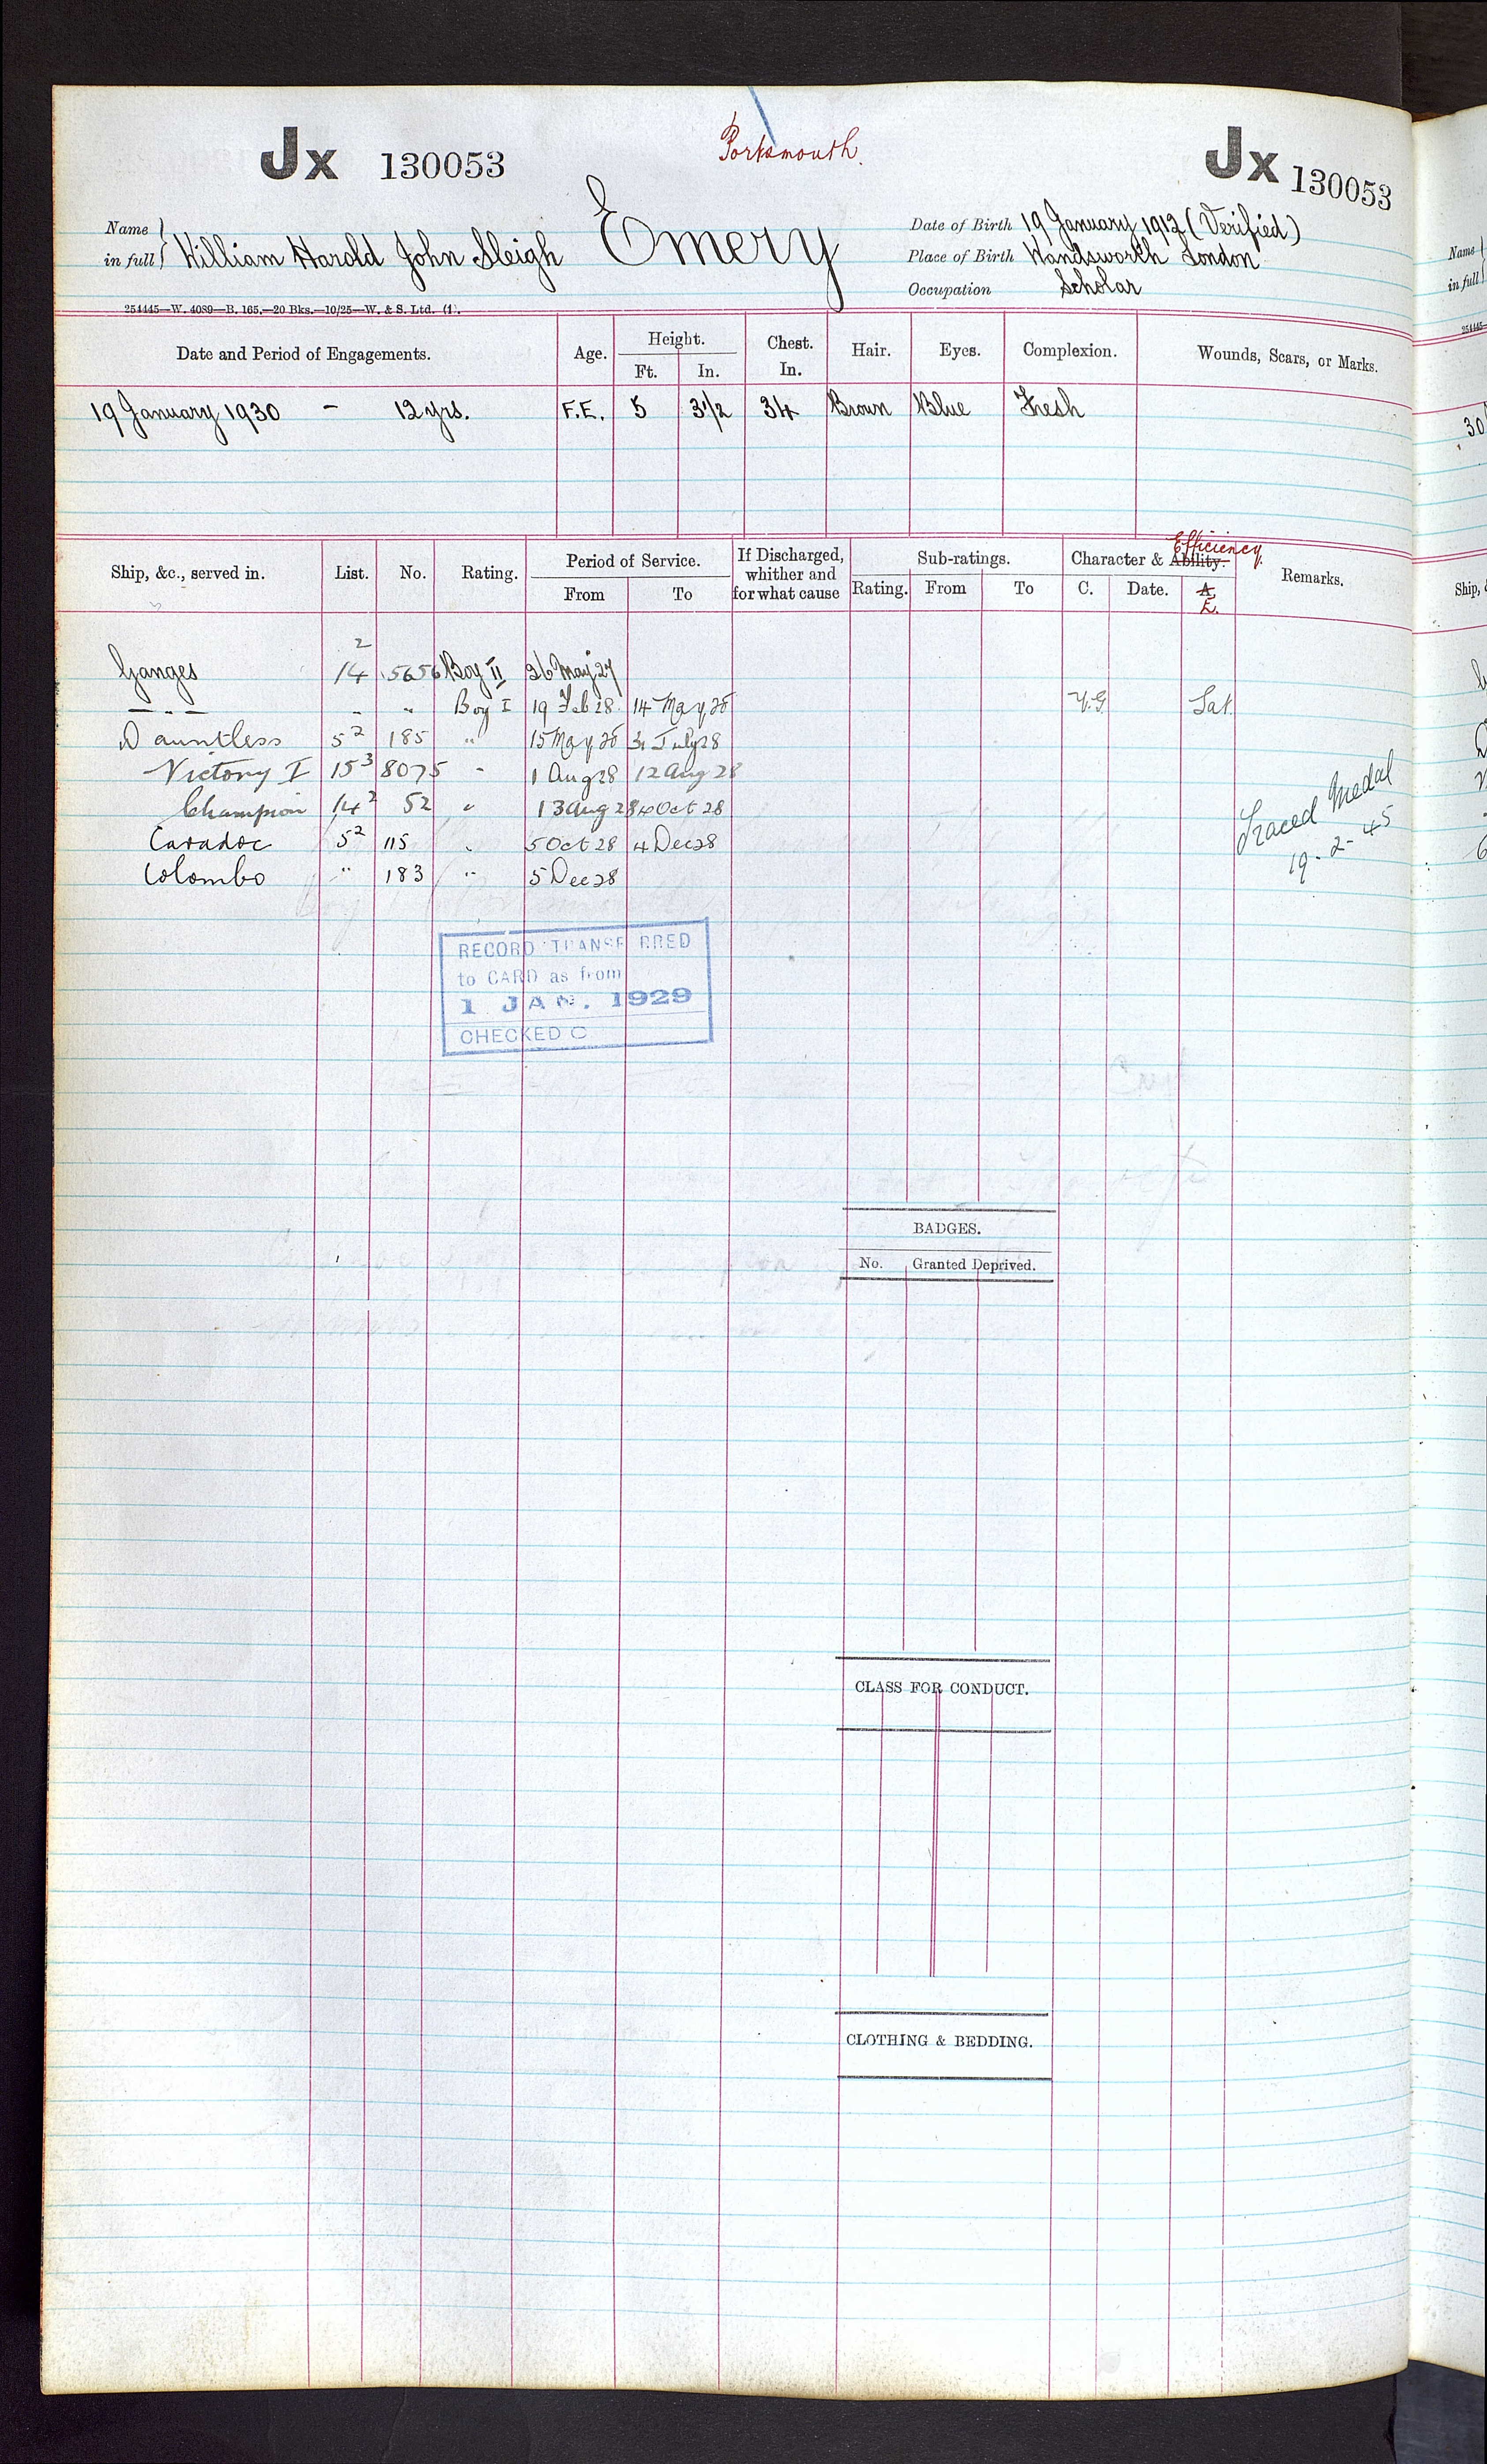 Portsmouth.
Jx 130053
Jx 130053
Name in full } William Harold John Sleigh Emery
Date of Birth 19 January 1912 (Verified)
Place of Birth Wandsworth London
Occupation Scholar
254445—W. 4089—B. 165.—20 Bks.—10/25—W. & S. Ltd. (1).
Date and Period of Engagements. Age. Height. Ft. In. Chest. In. Hair. Eyes. Complexion. Wounds, Scars, or Marks.
19 January 1930 - 12 yrs. F.E. 5 3 1/2 34 Brown Blue Fresh
Efficiency.
Ship, &c., served in. List. No. Rating. Period of Service. From To If Discharged, whither and for what cause Sub-ratings. Rating. From To Character & Ability. C. Date. A. E. Remarks.
Ganges 14 2 5656 Boy II 26 May 27
— „ — „ „ Boy I 19 Feb 28 14 May 28 V.G. Sat.
Dauntless 5 2 185 „ 15 May 28 31 July 28
Victory I 15 3 8075 „ 1 Aug 28 12 Aug 28
Champion 14 2 52 „ 13 Aug 28 4 Oct 28
Caradoc 5 2 115 „ 5 Oct 28 4 Dec 28
Colombo „ 183 „ 5 Dec 28
Traced Medal
19-2-45
RECORD TRANSFERRED
to CARD as from
1 JAN. 1929
CHECKED C
BADGES.
No. Granted Deprived.
CLASS FOR CONDUCT.
CLOTHING & BEDDING.
Name
in full
30
Ship,